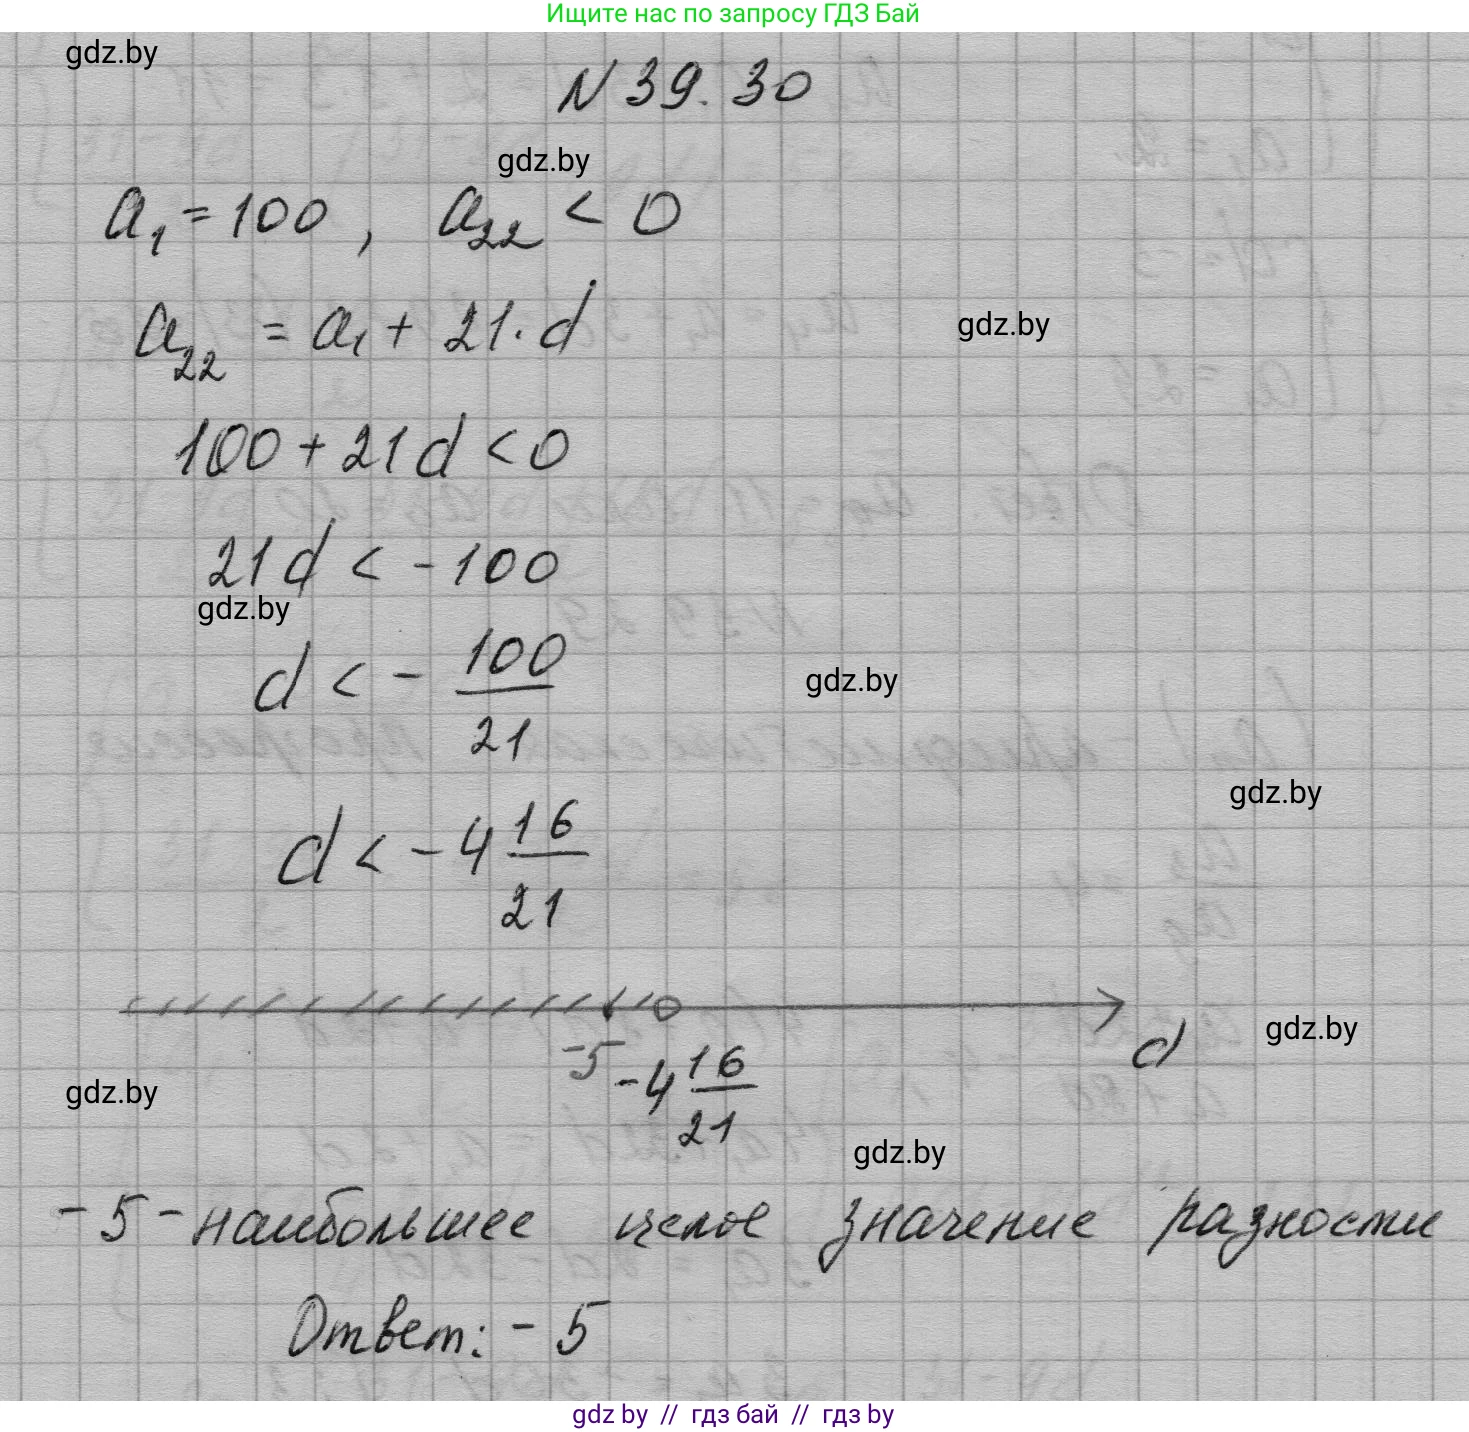 Ищите нас по запросу ГДЗ Бай
gdz.by
N 39.30
gdz.by
a₁ = 100, a₂₂ < 0
a₂₂ = a₁ + 21·d
gdz.by
100 + 21d < 0
21d < -100
gdz.by
d < - 100/21
gdz.by
gdz.by
d < -4 16/21
-5 -4 16/21 d
gdz.by
gdz.by
gdz.by
-5 - наибольшее целое значение разности
Ответ: -5
gdz by // гдз бай // гдз by